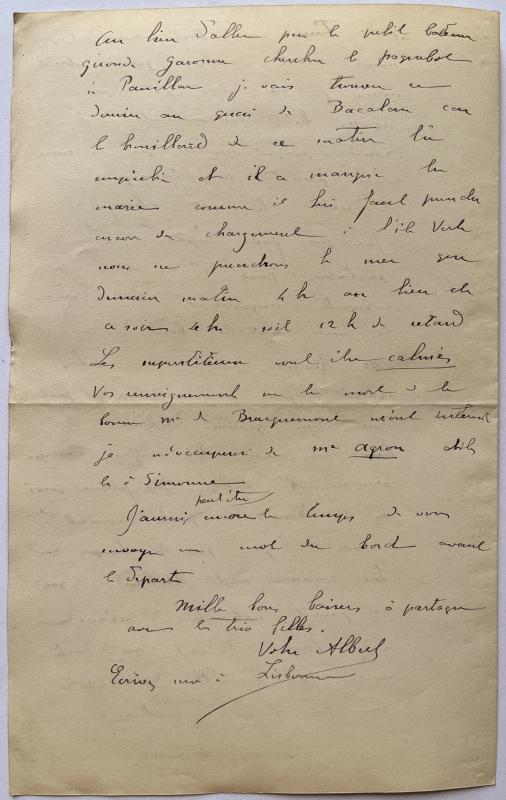 Au lieu d'aller par le petit bateau
gironde garonne chercher le paquebot
à Pauillac je vais trouver ce
dernier au quai de Bacalan car
le brouillard de ce matin l'a
empêché et il a manqué la
marée comme il lui faut prendre
encore du chargement à l'île Verte
nous ne prendrons la mer que
demain matin 4h au lieu de
ce soir 4h soit 12h de retard
Les superstitieux vont être calmés
Vos renseignements sur la mort de la
bonne Me de Bracquemont m'ont intéressé
je m'occuperai de Me agron dites
le à Simonne
peut être
J'aurai encore le temps de vous
envoyer un mot du bord avant
le Départ
Mille bons baisers à partager
avec les trio filles.
Votre Albert
Ecrivez moi à Lisbonne